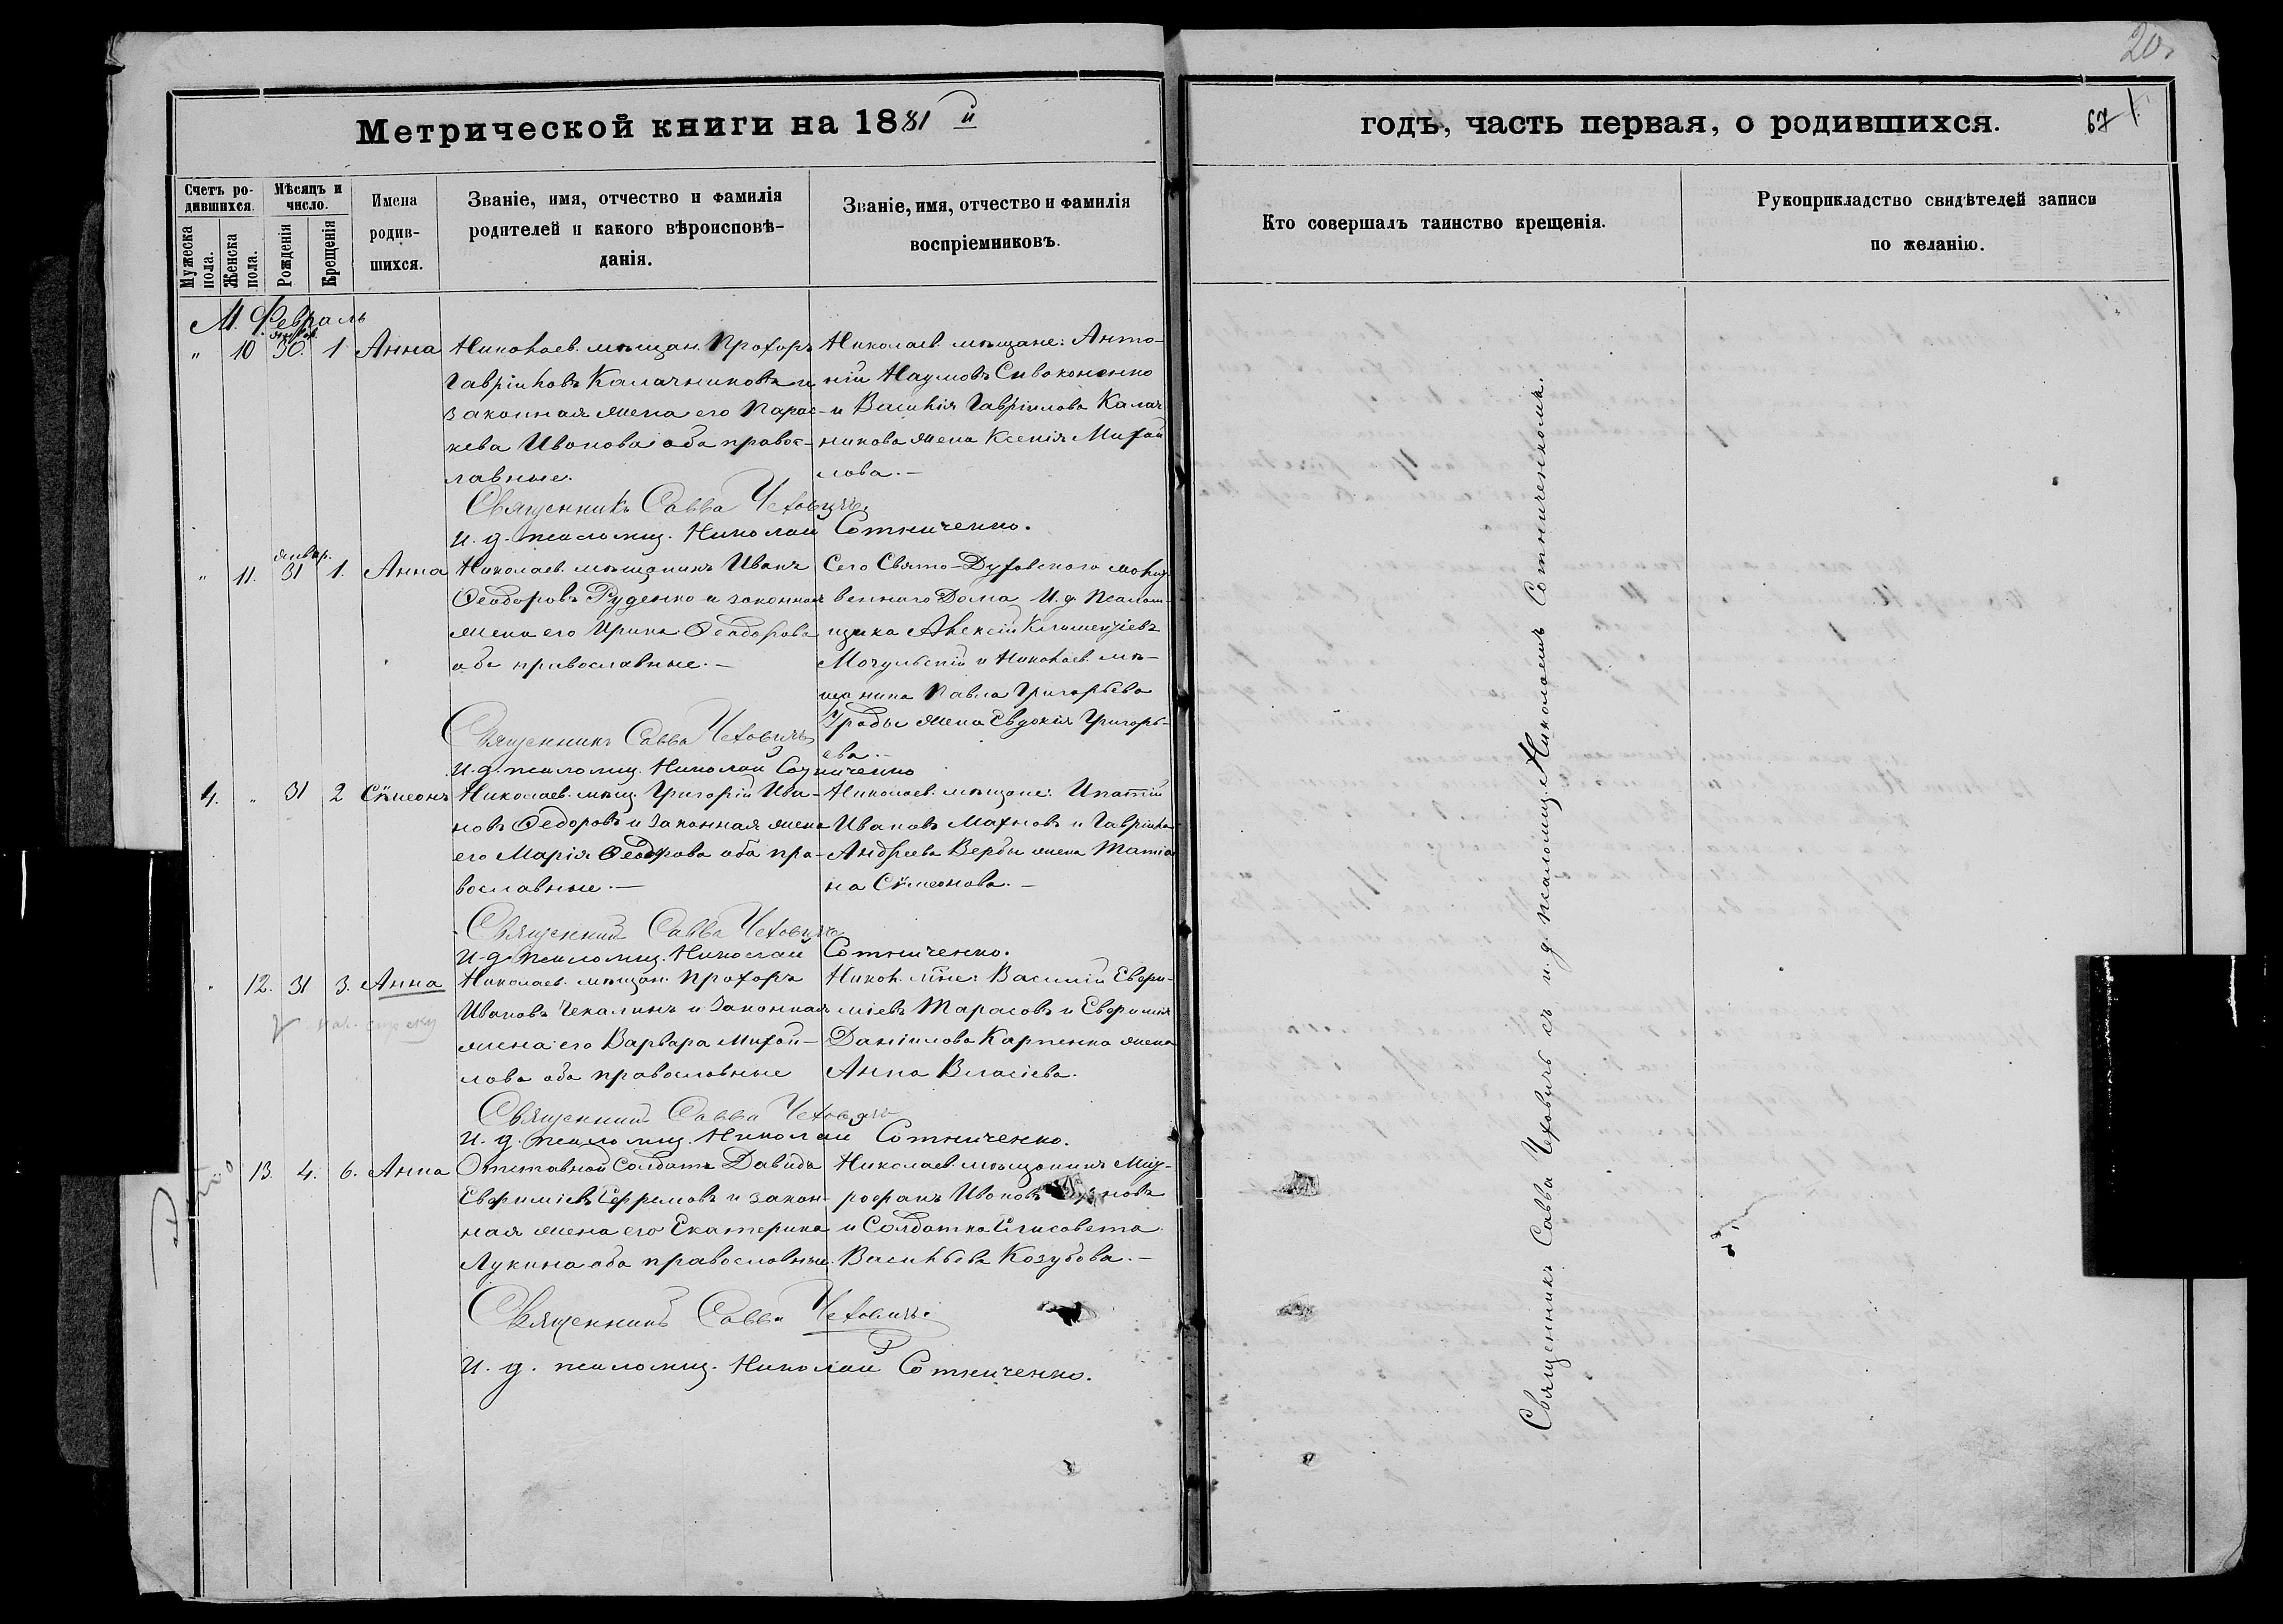 Метрической книги на 1881й
Счетъ ро-
дившихся.
Мѣсяцъ и
число.
Мужеска
пола.
Женска
пола.
Рожденія
Крещенія
Имена
родив-
шихся.
Званіе, имя, отчество и фамилія
родителей и какого вѣроисповѣ-
данія.
Званіе, имя, отчество и фамилія
воспріемниковъ.
М. Февраль
" 10 январ. 30. 1 Анна
Николаев. мѣщан. Прохоръ
Гавріиловъ Калачниковъ и
законная жена его Парас-
кева Иванова оба правос-
лавные.
Николаев. мѣщане: Анто-
ній Наумовъ Сивоконенко
и Василія Гавріилова Калач
никова жена Ксенія Михай
лова.–
Священникъ Савва Чеховичъ
и. д. псаломщ. Николай Сотниченко.
" 11. январ. 31 1. Анна
Николаев. мѣщанинъ Иванъ
Ѳеодоровъ Руденко и законная
жена его Ирина Ѳеодорова
оба православные.–
Сего Свято-Духовского молит
веннаго Дома И. д. Псалом-
щика Алексій Климентіевъ
Мочульскій и Николаев. мѣ-
щанина Павла Григорьева
Грабы жена Евдокія Григорь-
ева.–
Священникъ Савва Чеховичъ
и. д. псаломщ. Николай Сотниченко
4. " 31 2 Сѵмеонъ
Николаев. мѣщ. Григорій Ива-
новъ Ѳедоровъ и законная жена
его Марія Ѳеодорова оба пра-
вославные.–
Николаев. мѣщане: Ипатій
Ивановъ Махновъ и Гавріила
Андреева Вербы жена Татіа
на Сѵмеонова.–
Священникъ Савва Чеховичъ
и. д. псаломщ. Николай Сотниченко.
" 12. 31 3. Анна
Николаев. мѣщан. Прохоръ
Ивановъ Чекалинъ и законная
жена его Варвара Михай-
лова оба православные
Никол. мѣне: Василій Евфи-
міевъ Тарасовъ и Евфимія
Даніилова Карпенка жена
Анна Власіева.
Священникъ Савва Чеховичъ
и. д. псаломщ. Николай Сотниченко.
13. 4. 6. Анна
Отставной Солдатъ Давидъ
Евфиміевъ Ефремовъ и закон-
ная жена его Екатерина
Лукина оба православные.
Николаев. мѣщанинъ Мит-
рофанъ Ивановъ
и Солдатка Елисавета
Васильева Козубова.–
Священникъ Савва Чеховичъ
и. д. псаломщ. Николай Сотниченко.
20.
годъ, часть первая, о родившихся.
67
Кто совершалъ таинство крещенія.
Рукоприкладство свидѣтелей записи
по желанію.
Священникъ Савва Чеховичъ съ и. д. псаломщ. Николаемъ Сотниченкомъ.